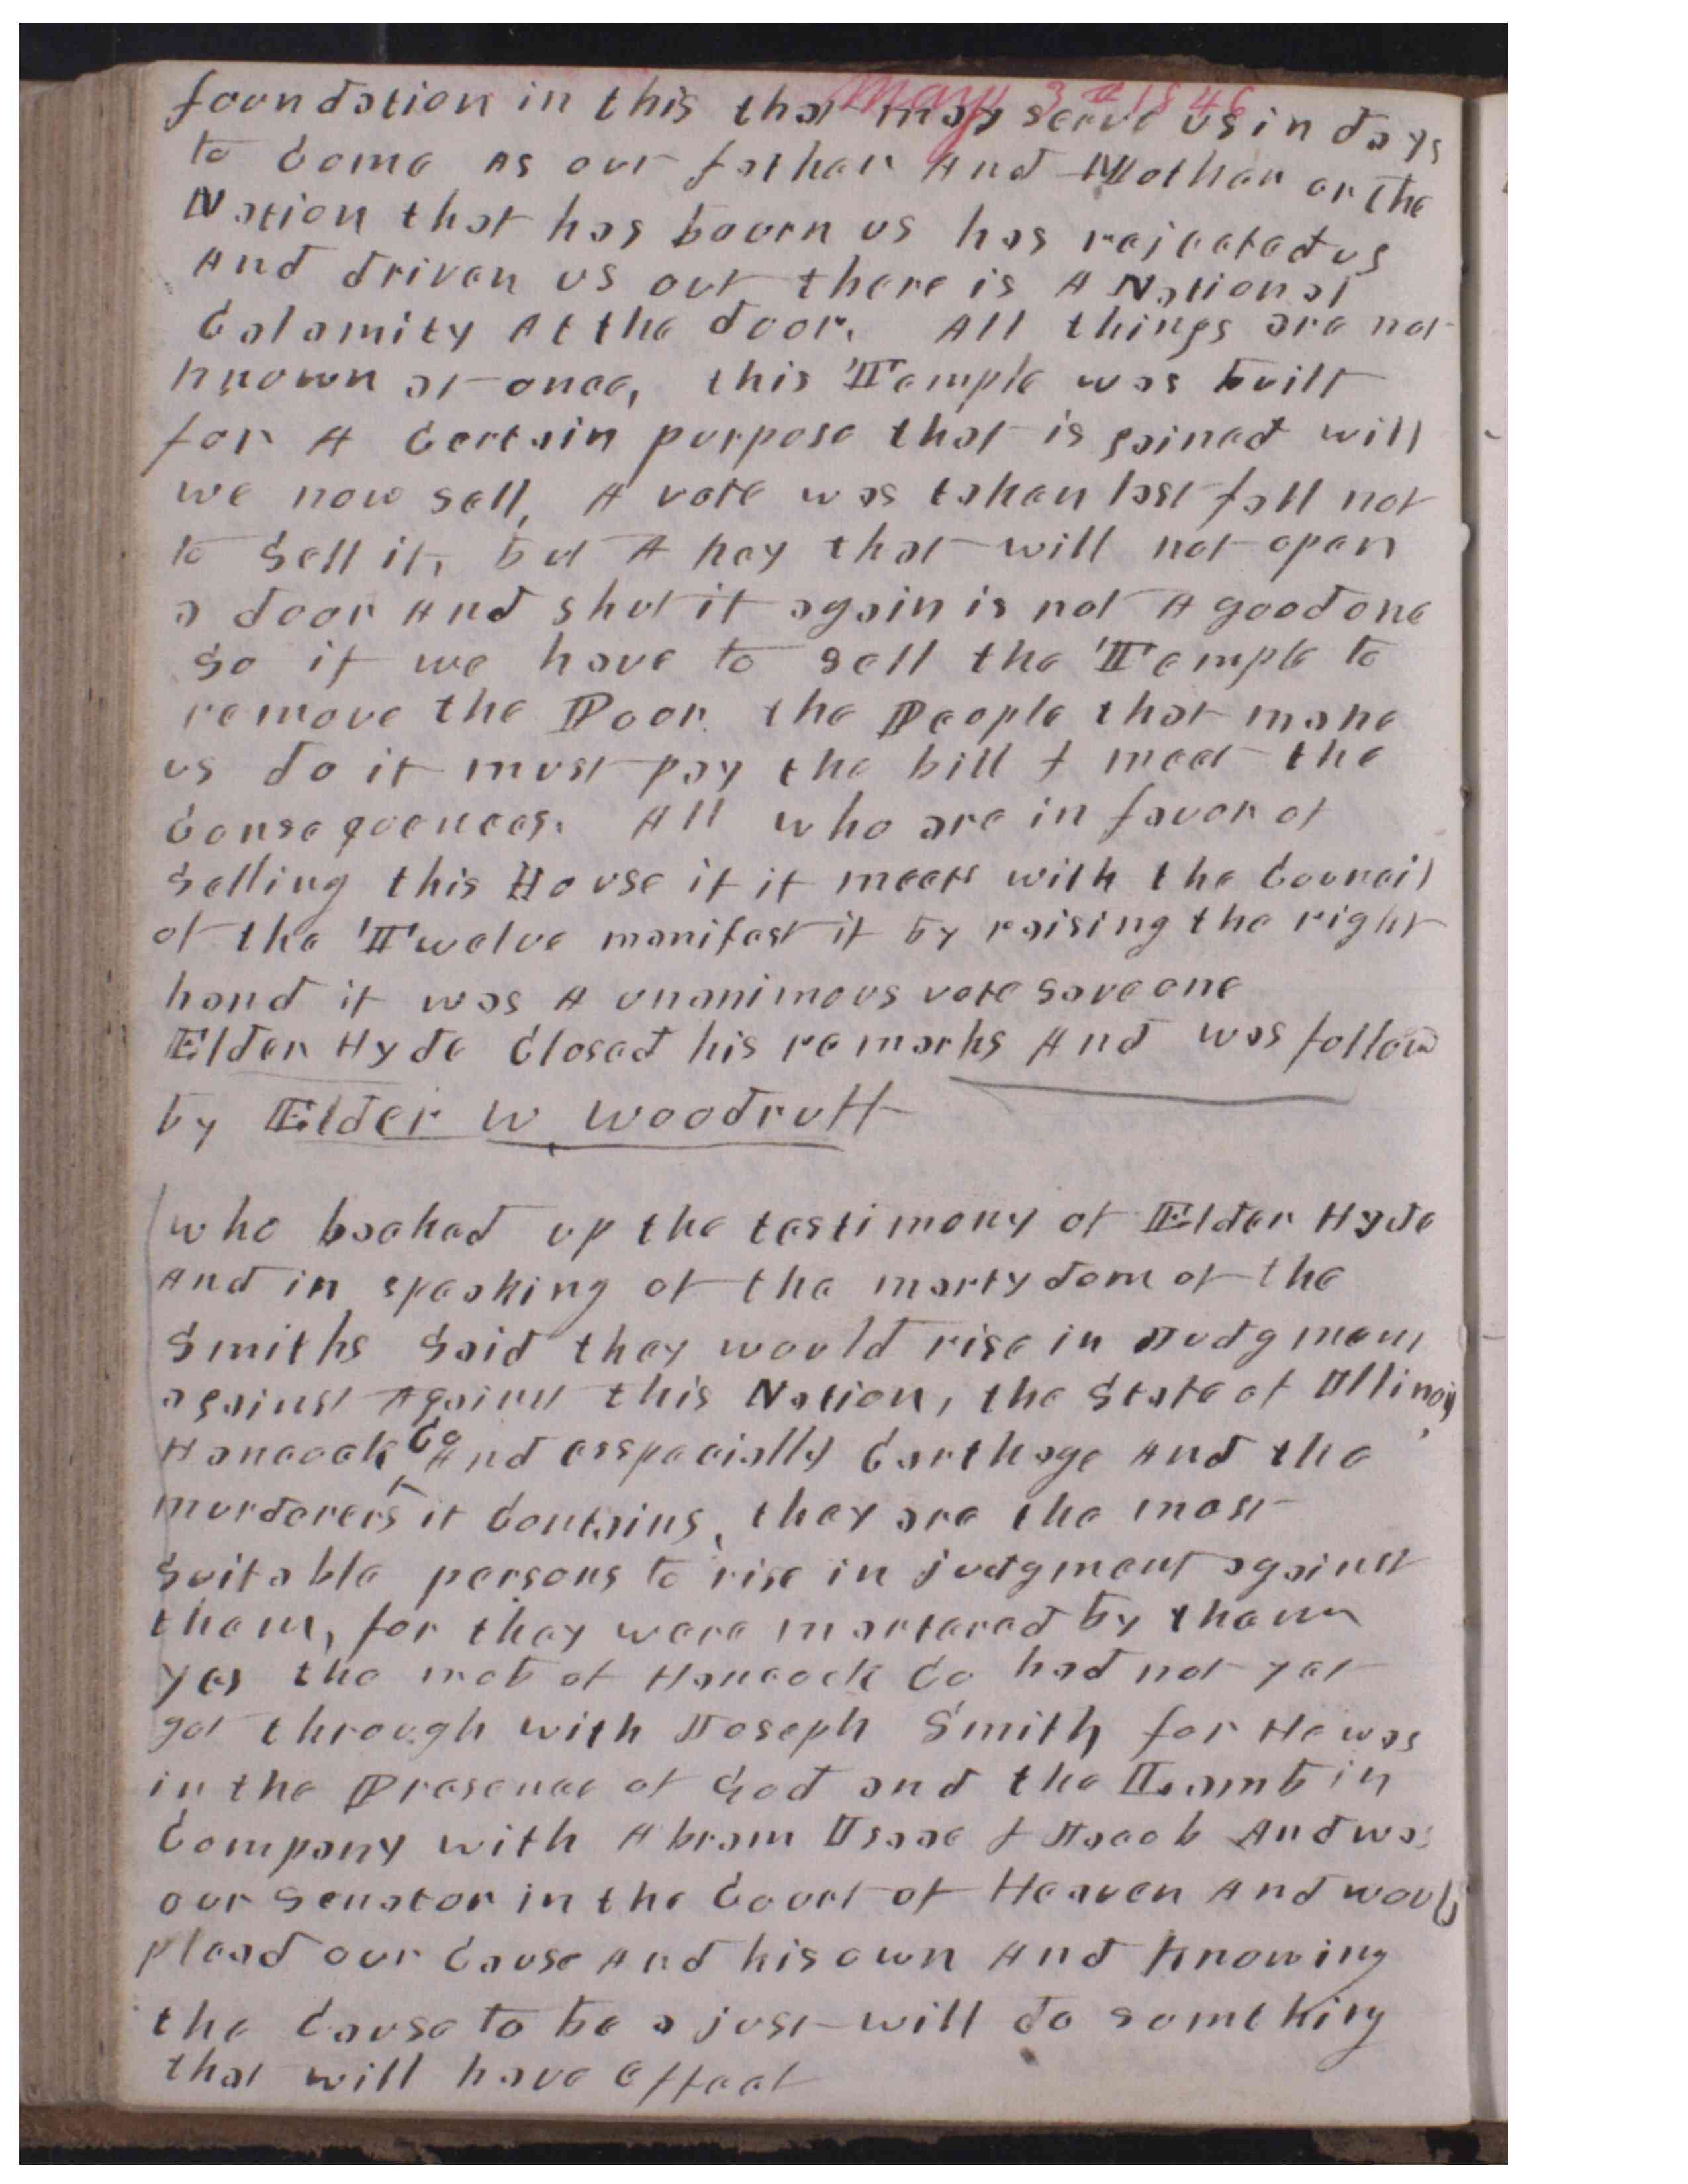 May 3d 1846
foundation in this that may serve us in days
to Come As our father And Mother or the
Nation that has bourn us has rejected us
And driven us out there is A National
Calamity At the door. All things are not
known at once, this Temple was built
for A Certain purpose that is gained will
we now sell, A vote was taken last fall not
to Sell it, but A key that will not open
a door And shut it again is not A good one
So if we have to sell the Temple to
remove the Poor the People that make
us do it must pay the bill & meet the
Consequences. All who are in favor of
Selling this House if it meets with the Councill
of the Twelve manifest it by raising the right
hand it was A unanimous vote save one
Elder Hyde Closed his remarks And was follow
by Elder W. Woodruff
who backed up the testimony of Elder Hyde
And in speaking of the martydom of the
Smiths Said they would rise in Judgment
against Against this Nation, the State of Illinois,
Hancock Co And esspecially Carthage And the
murderers it Contains, they are the most
Suitable persons to rise in judgment against
them, for they were martered by them
yes the mob of Hancock Co had not yet
got through with Joseph Smith for He was
in the Presence of God and the Lamb in
Company with Abram Isaac & Jacob And was
our Senator in the Court of Heaven And would
plead our Cause And his own And Knowing
the Cause to be a just will do something
that will have effect